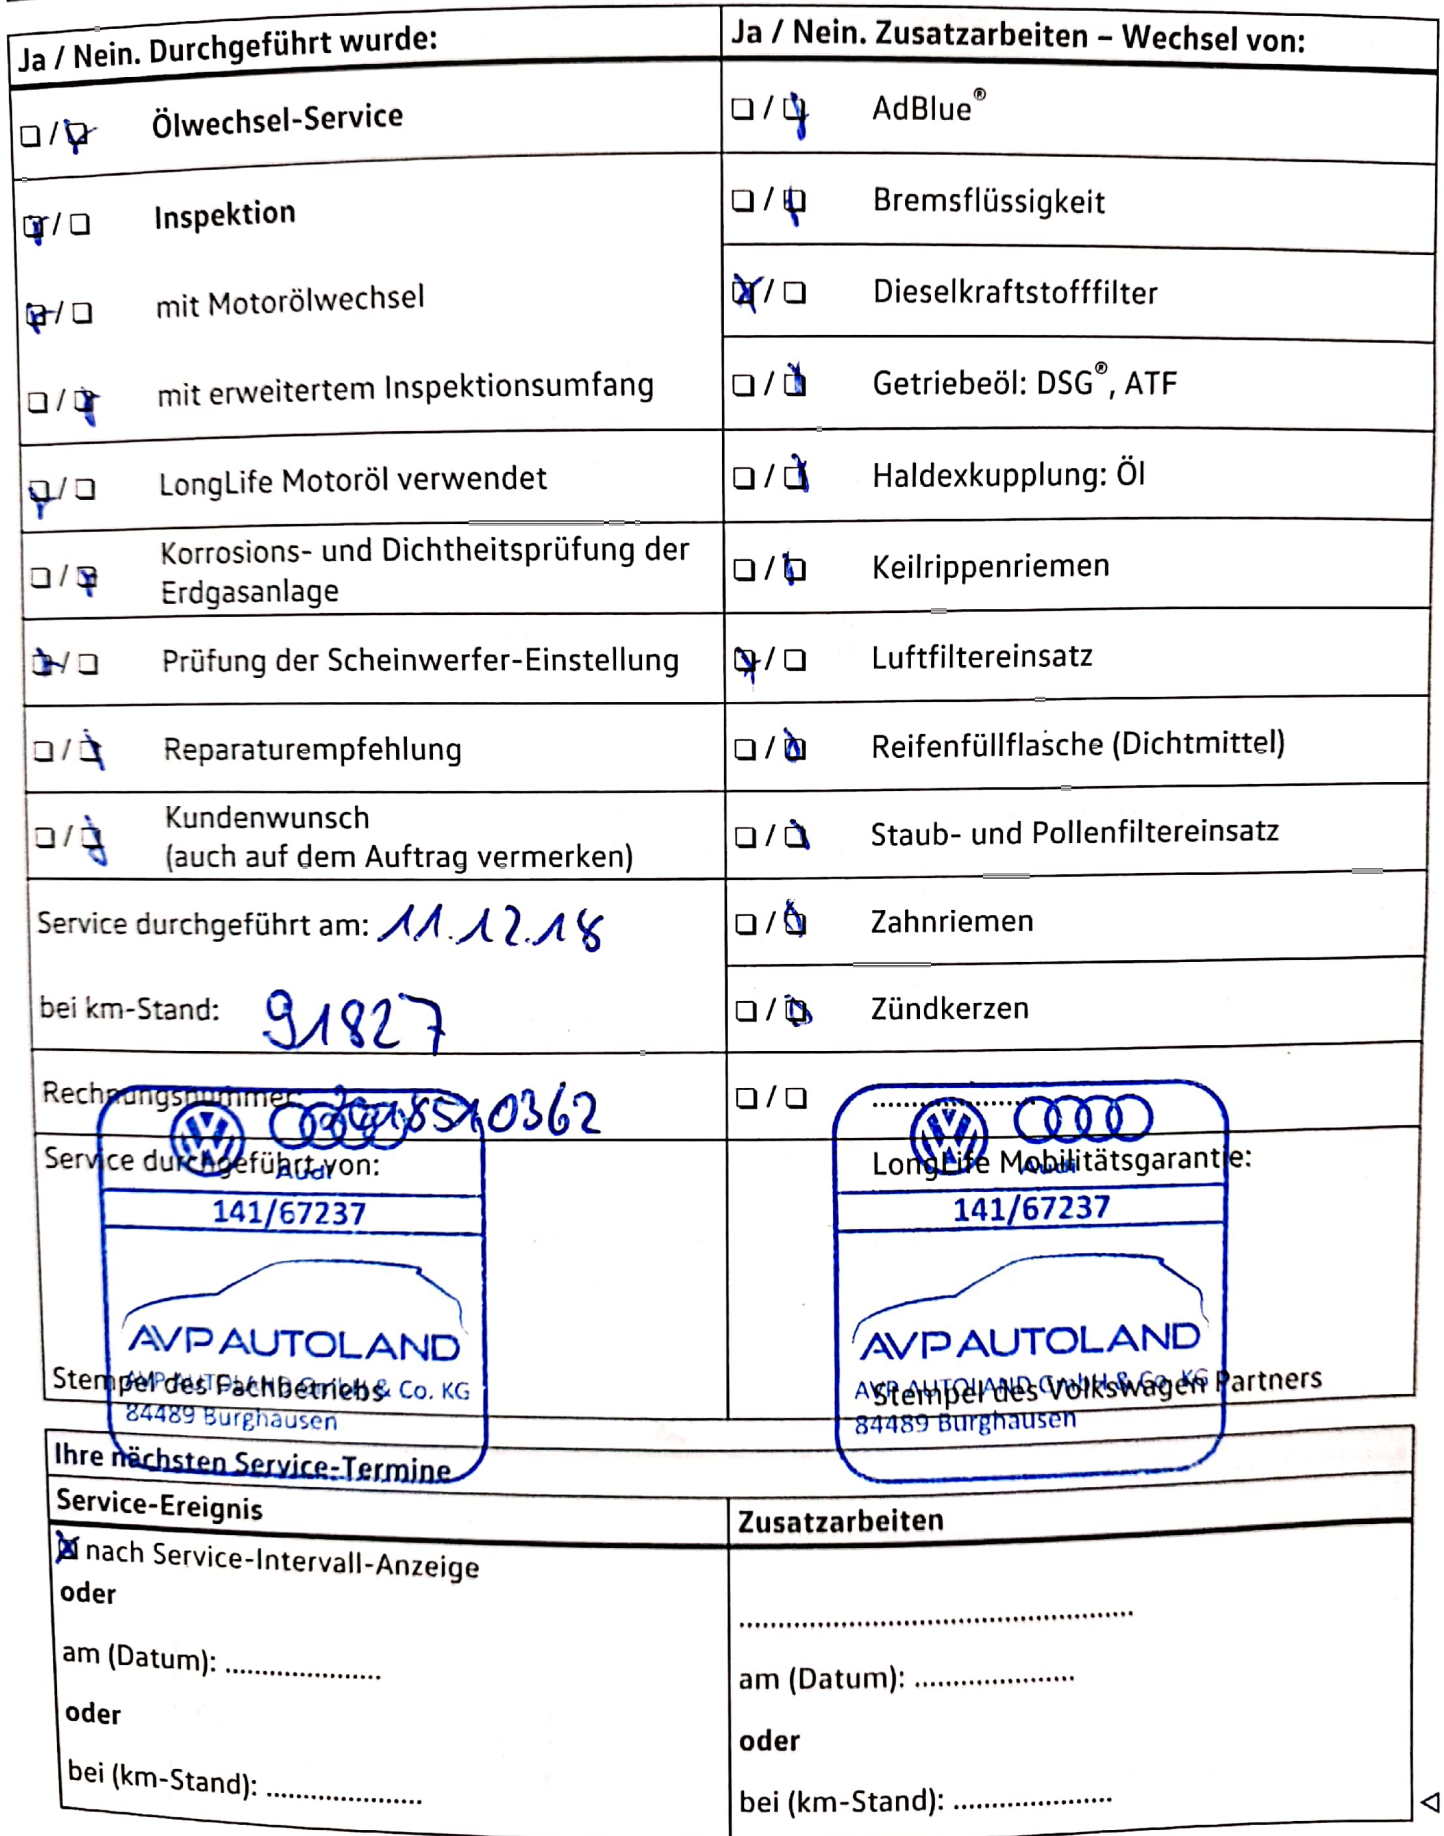 Ja / Nein. Durchgeführt wurde:
☐ / ☒ Ölwechsel-Service
☒ / ☐ Inspektion
☒ / ☐ mit Motorölwechsel
☐ / ☒ mit erweitertem Inspektionsumfang
☒ / ☐ LongLife Motoröl verwendet
☐ / ☒ Korrosions- und Dichtheitsprüfung der
Erdgasanlage
☒ / ☐ Prüfung der Scheinwerfer-Einstellung
☐ / ☒ Reparaturempfehlung
☐ / ☒ Kundenwunsch
(auch auf dem Auftrag vermerken)
Service durchgeführt am: 11.12.18
bei km-Stand: 91827
Rechnungsnummer:
Service durchgeführt von:
Audi
141/67237
AVP AUTOLAND
AVP AUTOLAND GmbH & Co. KG
Stempel des Fachbetriebs
84489 Burghausen
Ja / Nein. Zusatzarbeiten – Wechsel von:
☐ / ☒ AdBlue®
☐ / ☒ Bremsflüssigkeit
☒ / ☐ Dieselkraftstofffilter
☐ / ☒ Getriebeöl: DSG®, ATF
☐ / ☒ Haldexkupplung: Öl
☐ / ☒ Keilrippenriemen
☒ / ☐ Luftfiltereinsatz
☐ / ☒ Reifenfüllflasche (Dichtmittel)
☐ / ☒ Staub- und Pollenfiltereinsatz
☐ / ☒ Zahnriemen
☐ / ☒ Zündkerzen
☐ / ☐ ....................
LongLife Mobilitätsgarantie:
Audi
141/67237
AVP AUTOLAND
AVP AUTOLAND GmbH & Co. KG
Stempel des Volkswagen Partners
84489 Burghausen
Ihre nächsten Service-Termine
Service-Ereignis
☒ nach Service-Intervall-Anzeige
oder
am (Datum): ....................
oder
bei (km-Stand): ....................
Zusatzarbeiten
..................................................
am (Datum): ....................
oder
bei (km-Stand): ....................